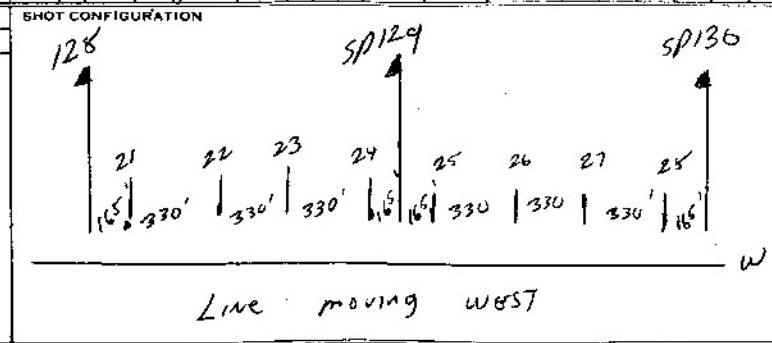 SHOT CONFIGURATION
128 SP129 SP130
21 22 23 24 25 26 27 25
165' 330' 330' 330' 165' 165' 330 330 330' 165'
W
Line moving WEST